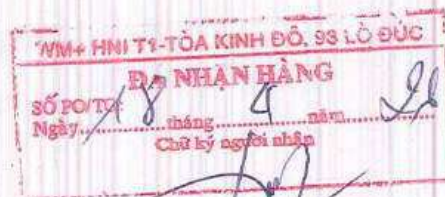 WM+ HNI T1-TÒA KINH ĐÔ, 93 LÒ ĐÚC
ĐÃ NHẬN HÀNG
SỐ PO/TO:
Ngày 18 tháng 4 năm
Chữ ký người nhận